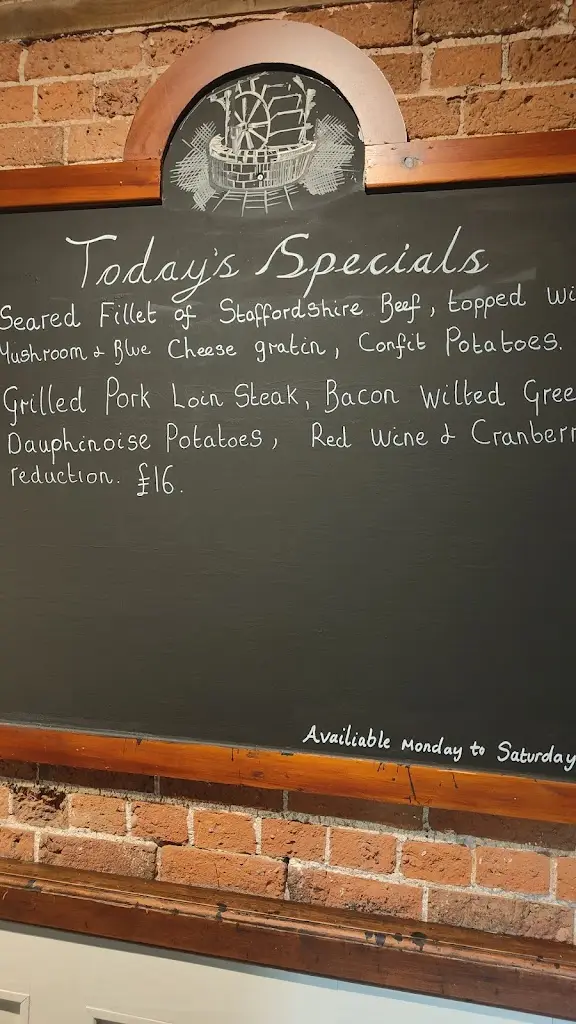 Today's Specials
Seared Fillet of Staffordshire Beef, topped wi
Mushroom & Blue Cheese gratin, Confit Potatoes.
Grilled Pork Loin Steak, Bacon Wilted Gree
Dauphinoise Potatoes, Red Wine & Cranberr
reduction. £16.
Availiable Monday to Saturday